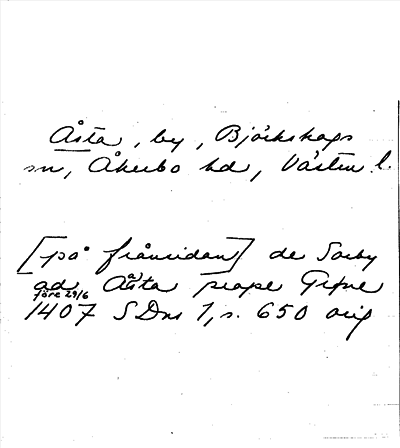 Åsta, by, Björkskogs
sn, Åkerbo hd, Västm. l.
[på frånsidan] de Sørby
ad Aasta prope Tifne
före 29/6
1407 SDns 1, s. 650 orig